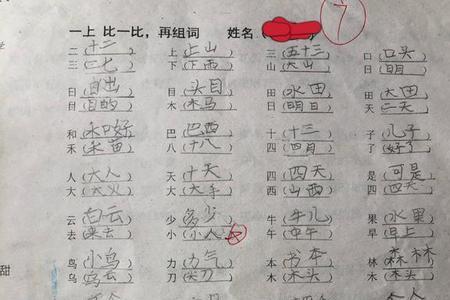 一上 比一比，再组词 姓名
7
二（十二） 上（上山） 三（五十三） 口（口头）
三（三七） 下（下雨） 山（大山） 日（日明）
日（日出） 目（头目） 田（水田） 田（大田）
目（目的） 木（木马） 日（明日） 天（二天）
和（和好） 巴（巴西） 十（十三） 子（儿子）
禾（禾苗） 八（十八） 四（四月） 了（好了）
人（大人） 天（十天） 四（四天） 是（可是）
大（大火） 大（大车） 西（山西） 四（四天）
云（白云） 少（多少） 牛（牛儿） 果（水果）
去（来去） 小（小人） 午（中午） 早（早上）
鸟（小鸟） 力（力气） 本（书本） 林（森林）
乌（乌云） 刀（尖刀） 木（木头） 木
甜